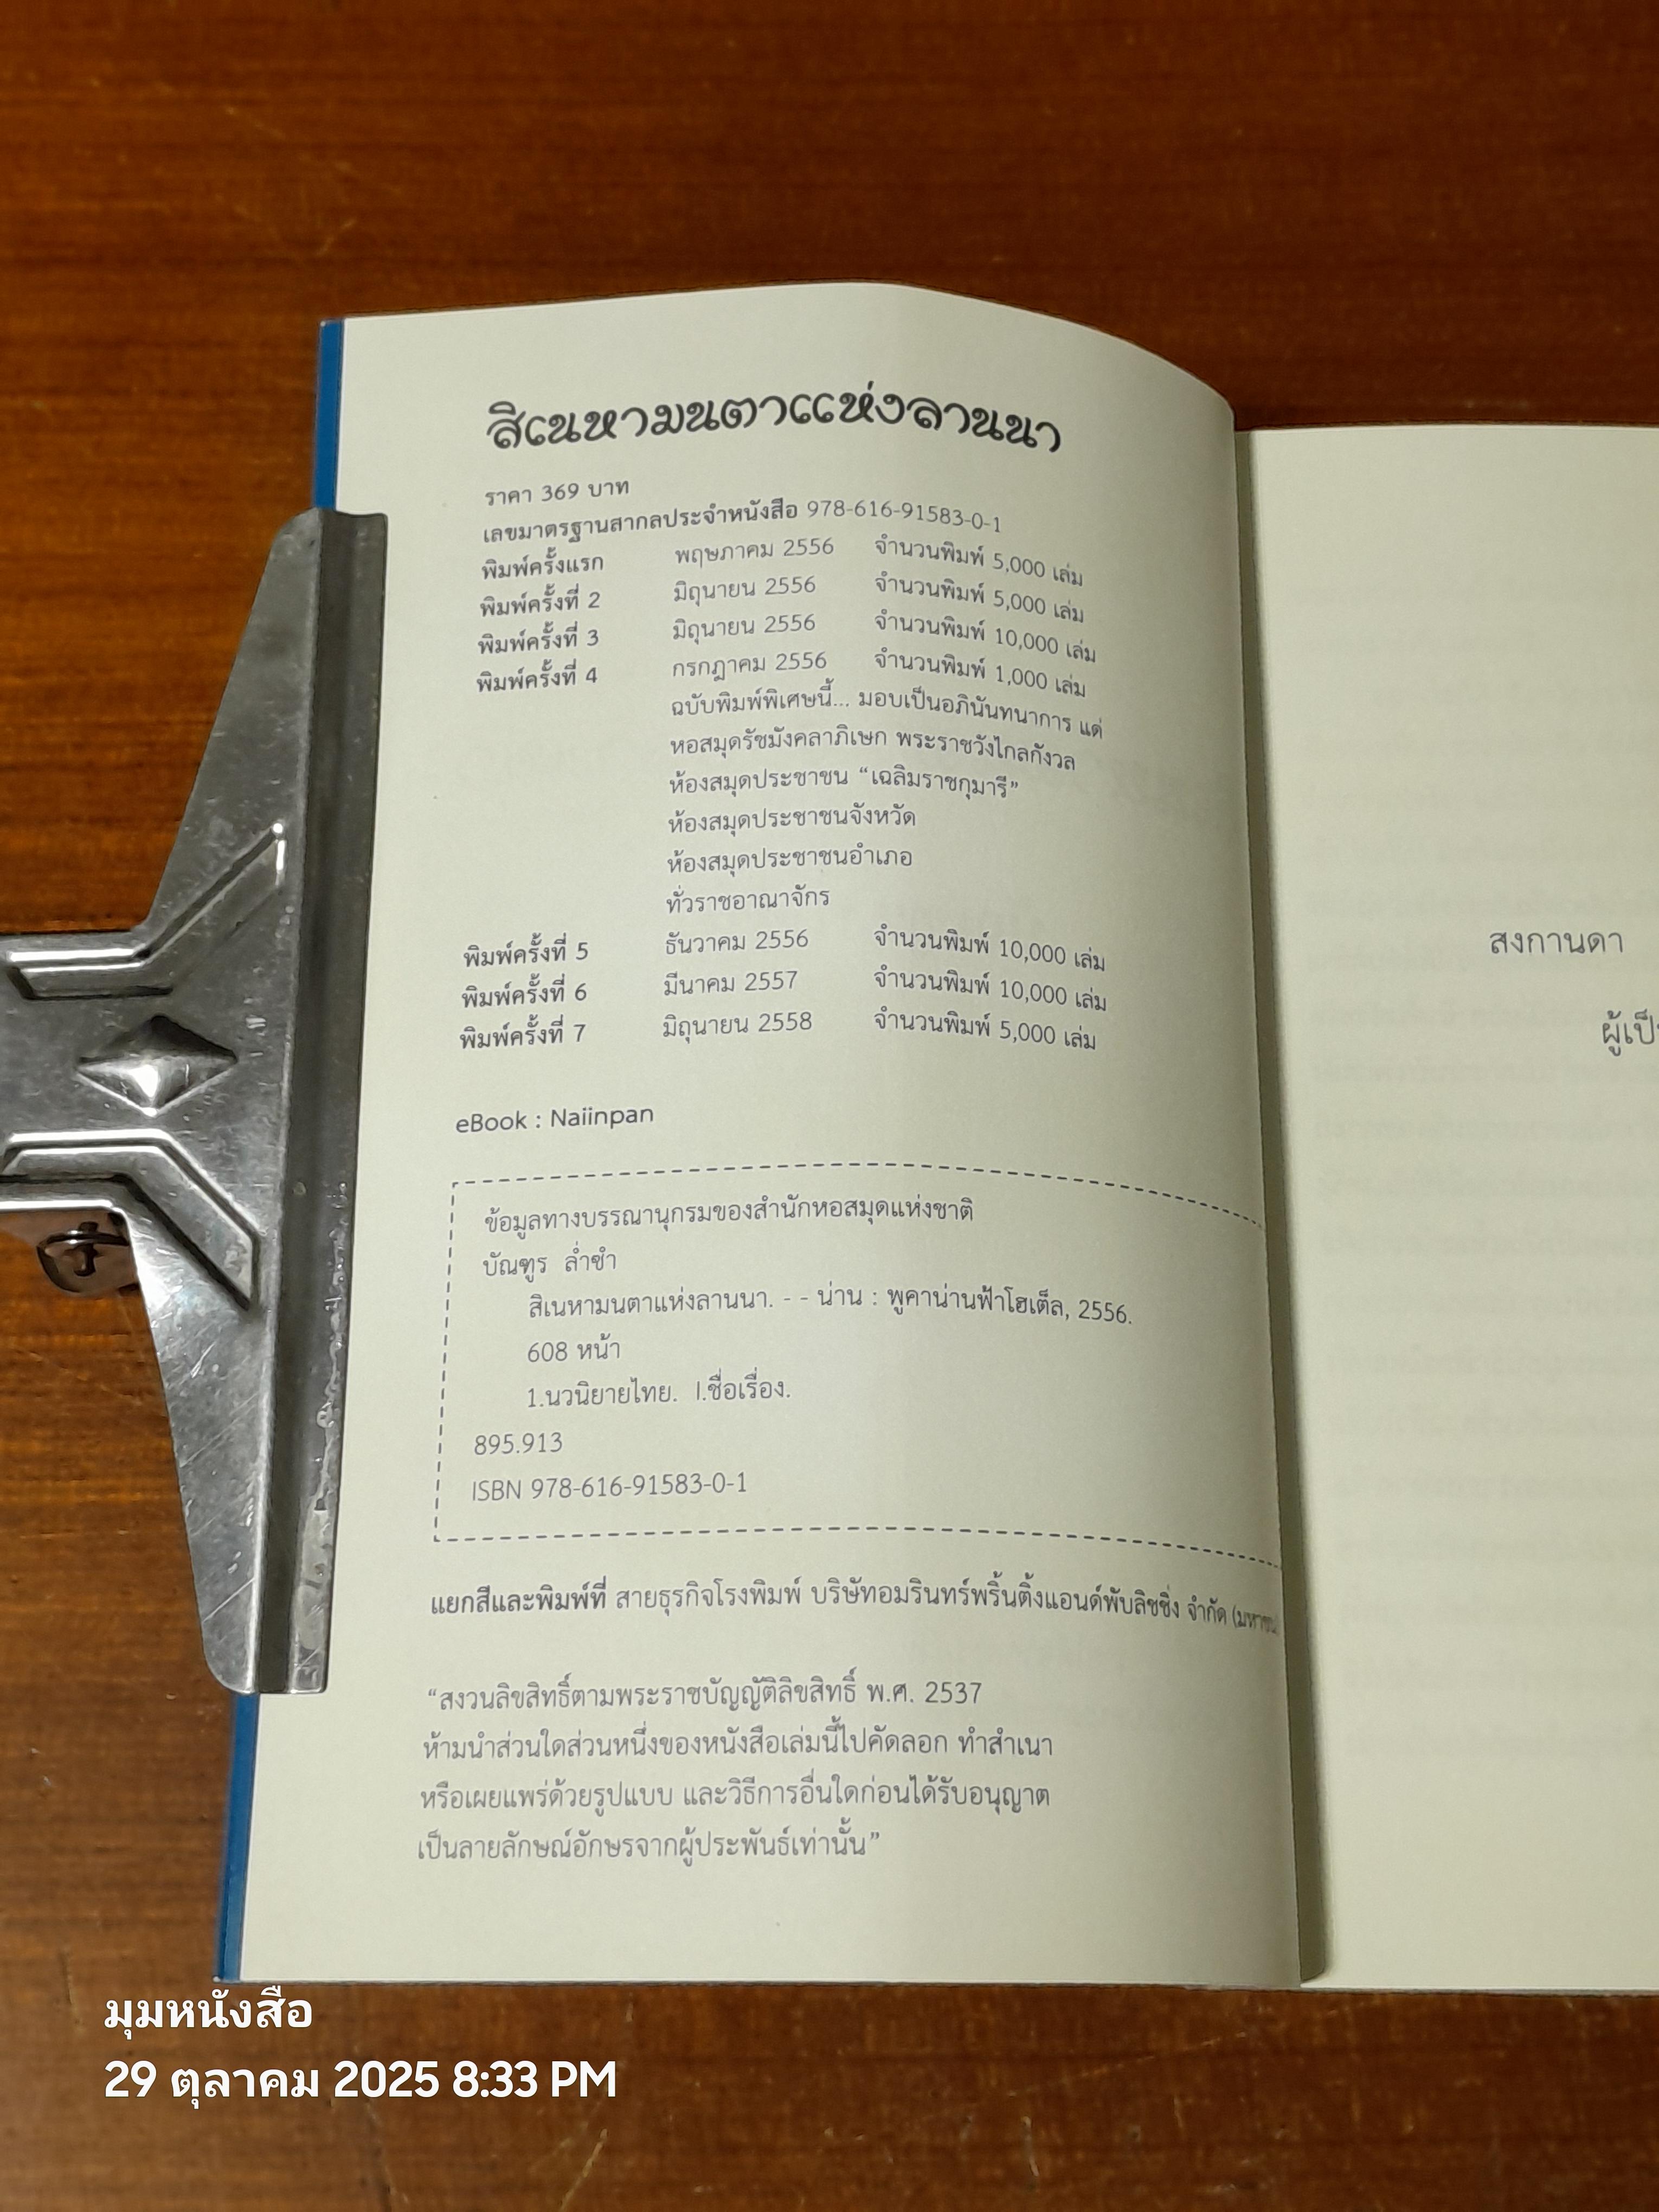 สิเนหามนตาแห่งลานนา
ราคา 369 บาท
เลขมาตรฐานสากลประจำหนังสือ 978-616-91583-0-1
พิมพ์ครั้งแรก พฤษภาคม 2556 จำนวนพิมพ์ 5,000 เล่ม
พิมพ์ครั้งที่ 2 มิถุนายน 2556 จำนวนพิมพ์ 5,000 เล่ม
พิมพ์ครั้งที่ 3 มิถุนายน 2556 จำนวนพิมพ์ 10,000 เล่ม
พิมพ์ครั้งที่ 4 กรกฎาคม 2556 จำนวนพิมพ์ 1,000 เล่ม
ฉบับพิมพ์พิเศษนี้... มอบเป็นอภินันทนาการ แด่
หอสมุดรัชมังคลาภิเษก พระราชวังไกลกังวล
ห้องสมุดประชาชน “เฉลิมราชกุมารี”
ห้องสมุดประชาชนจังหวัด
ห้องสมุดประชาชนอำเภอ
ทั่วราชอาณาจักร
พิมพ์ครั้งที่ 5 ธันวาคม 2556 จำนวนพิมพ์ 10,000 เล่ม
พิมพ์ครั้งที่ 6 มีนาคม 2557 จำนวนพิมพ์ 10,000 เล่ม
พิมพ์ครั้งที่ 7 มิถุนายน 2558 จำนวนพิมพ์ 5,000 เล่ม
eBook : Naiinpan
ข้อมูลทางบรรณานุกรมของสำนักหอสมุดแห่งชาติ
บัณฑูร ล่ำซำ
สิเนหามนตาแห่งลานนา. - - น่าน : พูคาน่านฟ้าโฮเต็ล, 2556.
608 หน้า
1.นวนิยายไทย. I.ชื่อเรื่อง.
895.913
ISBN 978-616-91583-0-1
แยกสีและพิมพ์ที่ สายธุรกิจโรงพิมพ์ บริษัทอมรินทร์พริ้นติ้งแอนด์พับลิชชิ่ง จำกัด (มหาชน)
“สงวนลิขสิทธิ์ตามพระราชบัญญัติลิขสิทธิ์ พ.ศ. 2537
ห้ามนำส่วนใดส่วนหนึ่งของหนังสือเล่มนี้ไปคัดลอก ทำสำเนา
หรือเผยแพร่ด้วยรูปแบบ และวิธีการอื่นใดก่อนได้รับอนุญาต
เป็นลายลักษณ์อักษรจากผู้ประพันธ์เท่านั้น”
สงกานดา
มุมหนังสือ
29 ตุลาคม 2025 8:33 PM